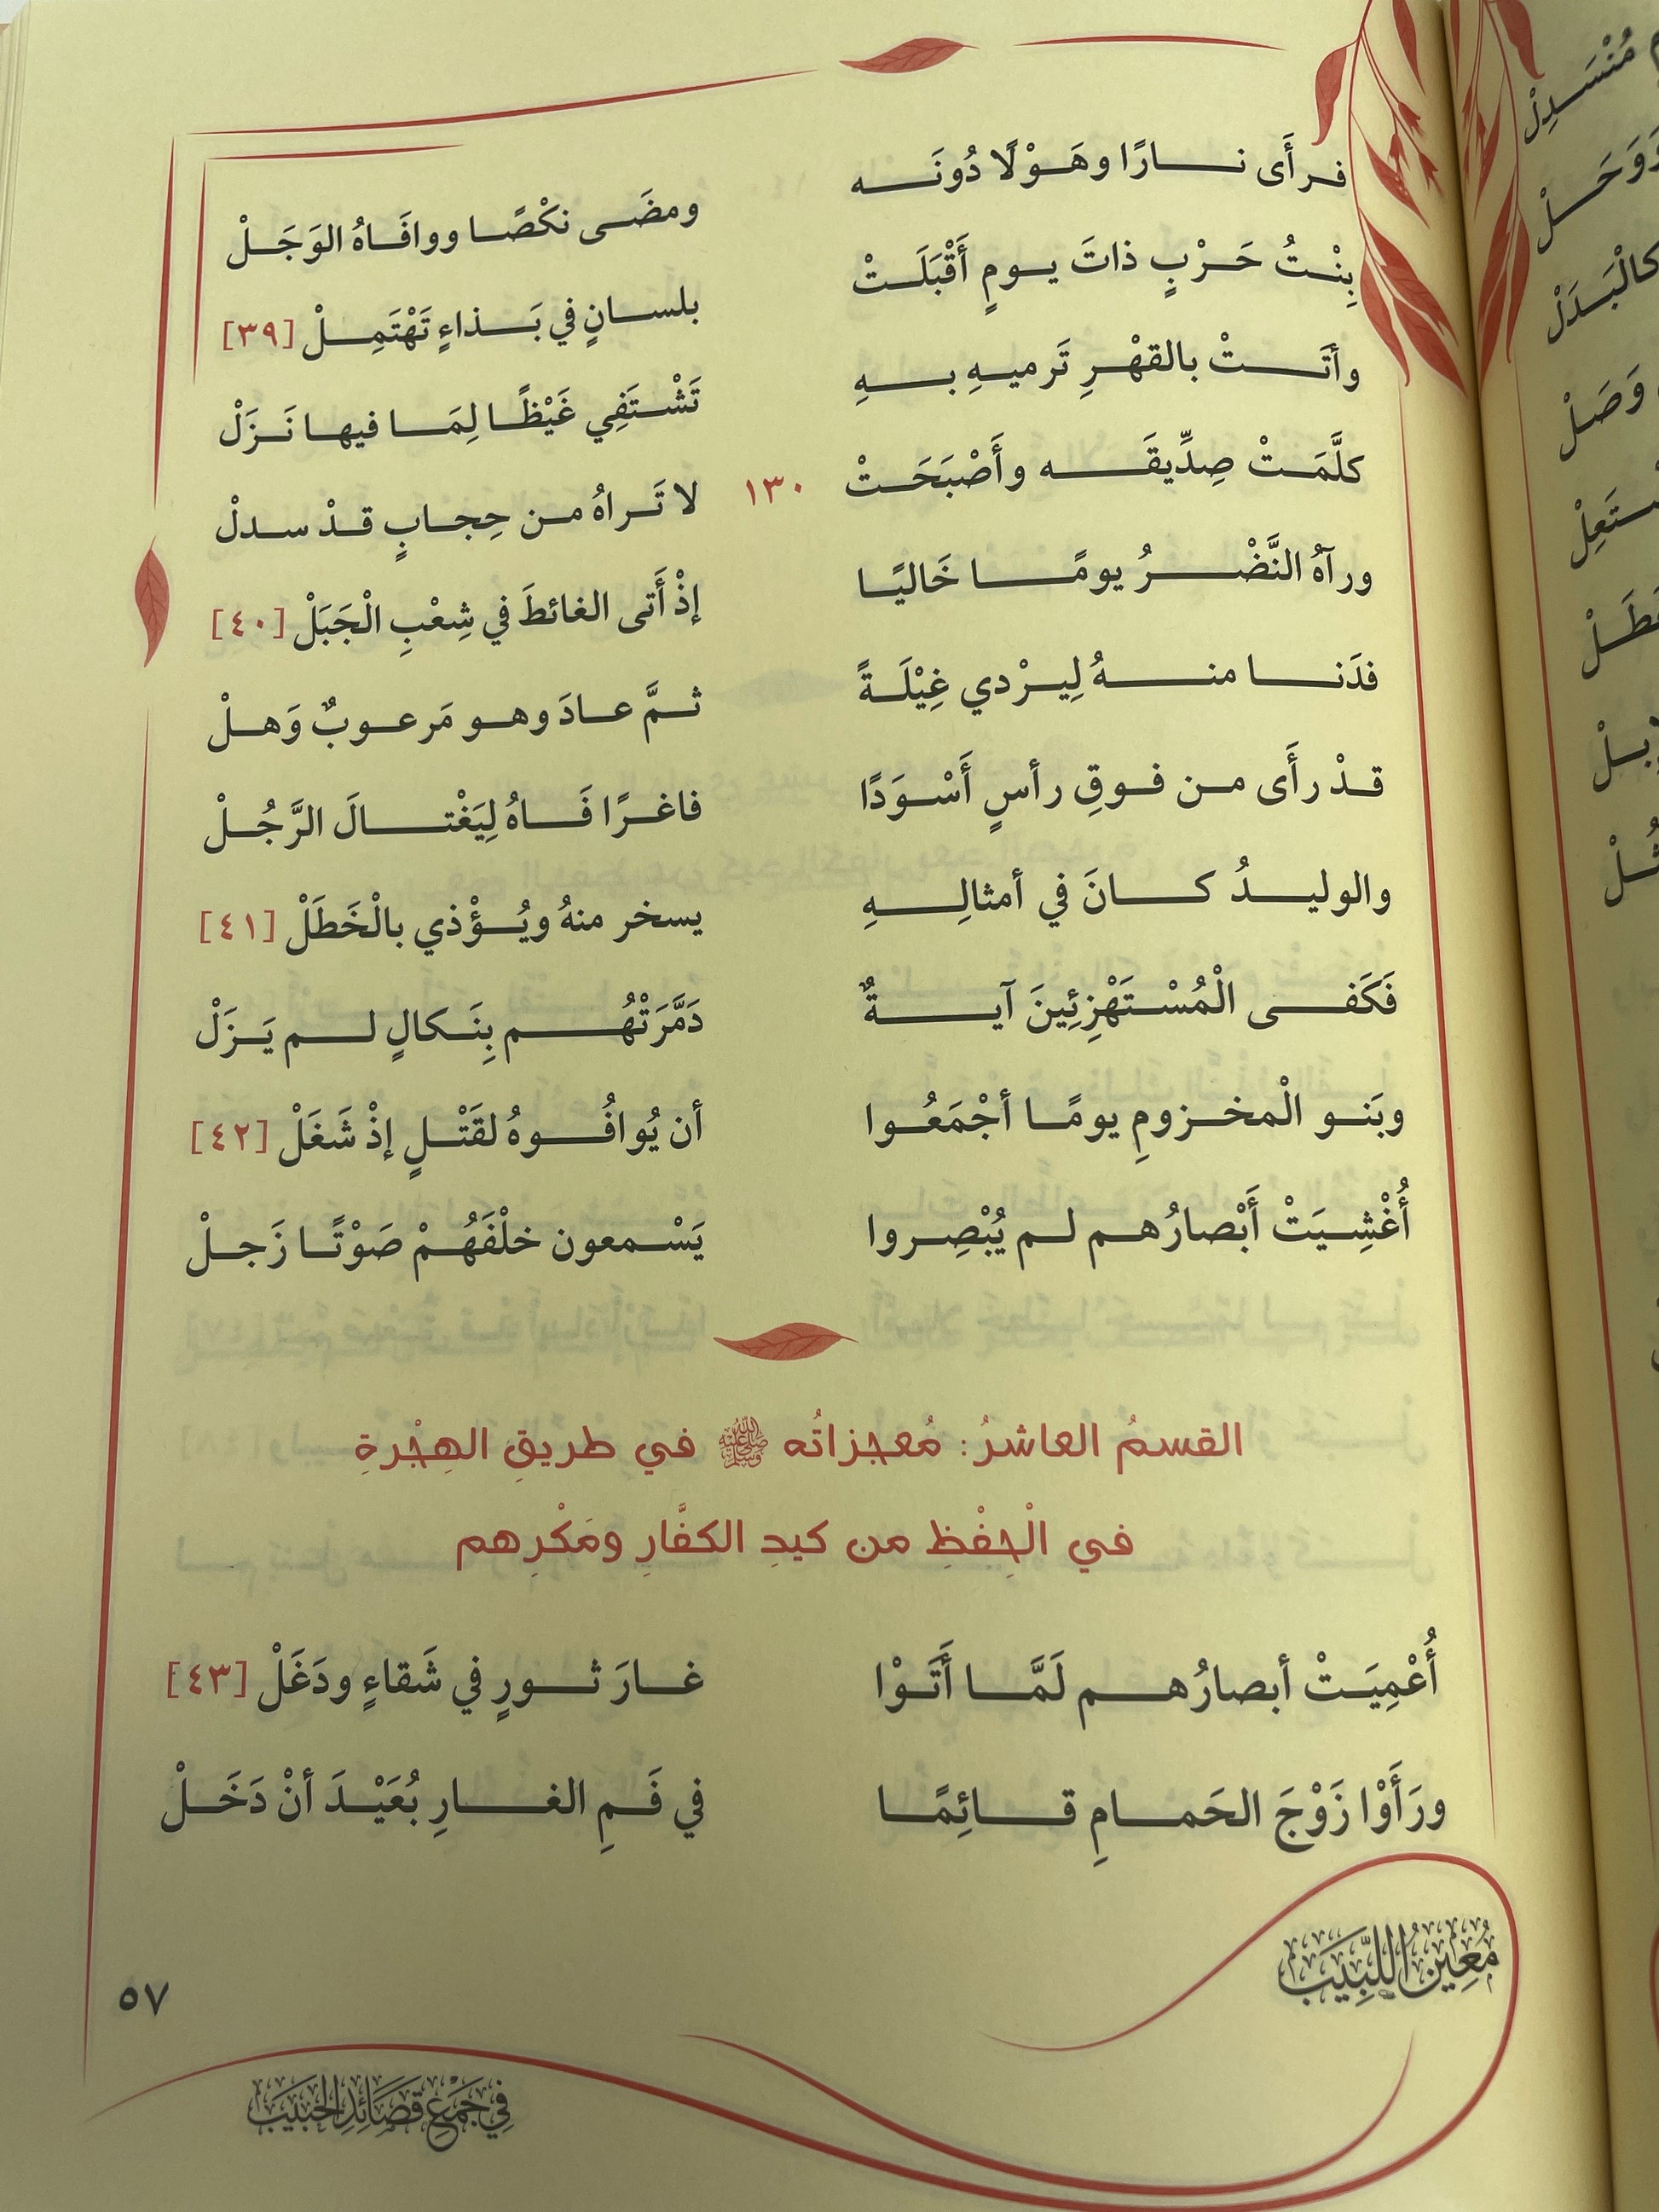 فرأَى نارًا وهَوْلًا دُونَه ومضَى نكْصًا ووافَاهُ الوَجَلْ
بِنْتُ حَرْبٍ ذاتَ يومٍ أَقْبَلَتْ بلسانٍ في بَذاءٍ تَهْتَمِلْ [٣٩]
وأتَتْ بالقهْرِ تَرميهِ بهِ تَشْتَفِي غَيْظًا لِمَا فيها نَزَلْ
كلَّمَتْ صِدِّيقَه وأَصْبَحَتْ ١٣٠ لا تَراهُ من حِجابٍ قدْ سدلْ
ورآهُ النَّضْرُ يومًا خَاليًا إذْ أَتى الغائطَ في شِعْبِ الْجَبَلْ [٤٠]
فدَنا منهُ لِيرْدي غِيْلَةً ثمَّ عادَ وهو مَرعوبٌ وَهلْ
قدْ رأَى من فوقِ رأسٍ أَسْوَدًا فاغرًا فَاهُ لِيَغْتالَ الرَّجُلْ
والوليدُ كانَ في أمثالِهِ يسخر منهُ ويُؤْذي بالْخَطَلْ [٤١]
فَكَفى الْمُسْتَهْزِئِينَ آيةٌ دَمَّرَتْهُم بِنَكالٍ لم يَزَلْ
وبَنو الْمخزومِ يومًا أجْمَعُوا أن يُوافُوهُ لقَتْلٍ إذْ شَغَلْ [٤٢]
أُغْشِيَتْ أَبْصارُهم لم يُبْصِروا يَسْمعون خلْفَهُمْ صَوْتًا زَجلْ
القسمُ العاشرُ: مُعجزاتُه ﷺ في طريقِ الهِجْرةِ
في الْحِفْظِ من كيدِ الكفَّارِ ومَكْرِهم
أُعْمِيَتْ أبصارُهم لَمَّا أَتَوْا غارَ ثورٍ في شَقاءٍ ودَغَلْ [٤٣]
ورَأَوْا زَوْجَ الحَمامِ قائِمًا في فَمِ الغارِ بُعَيْدَ أنْ دَخَلْ
مُعِينُ اللَّبِيبِ
٥٧
فِي جَمْعِ قَصَائِدِ الحَبِيبِ
مُنْسَدِلْ
وَحَلْ
كالْبَدَلْ
وَصَلْ